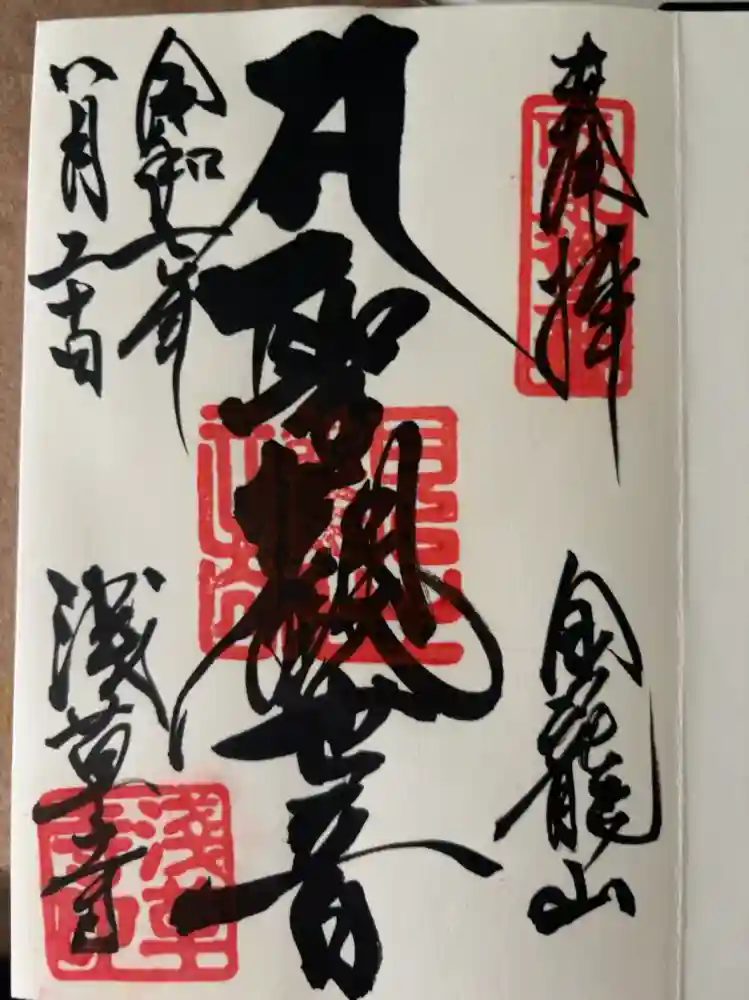 奉拝
金龍山
聖観世音
令和七年
八月二十日
浅草寺